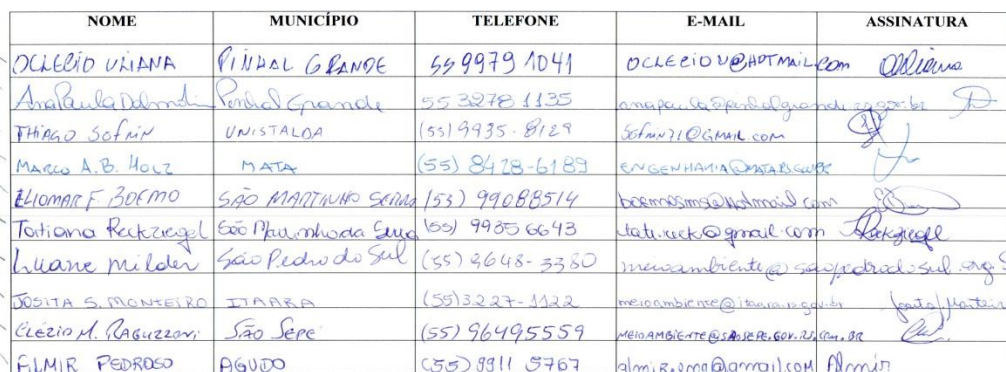 NOME MUNICÍPIO TELEFONE E-MAIL ASSINATURA
OCLECIO ULIANA PINHAL GRANDE 55 9979 1041 OCLECIOU@HOTMAIL.com
Ana Paula Pinhal Grande 55 3278 1135 anapaula@pinhalgrande.rs.gov.br
THIAGO UNISTALDA (55) 9935-8129 @GMAIL.COM
MARCO A.B. HOLZ MATA (55) 8428-6189 ENGENHARIA@MATA.RS.GOV.BR
ELIOMAR F. BOEMO SÃO MARTINHO SERRA (55) 99088514 boemosms@hotmail.com
Tatiana Reckziegel São Martinho da Serra (55) 9935 6643 tati.reck@gmail.com Reckziegel
Luane Milder São Pedro do Sul (55) 9648-3380 meioambiente@saopedrodosul.org.
JOSITA S. MONTEIRO ITAARA (55)3227-1122 meioambiente@itaara.rs.gov.br Josita Monteiro
CLÉZIO M. RAGUZZONI SÃO SEPÉ (55) 96495559 MEIOAMBIENTE@SAOSEPE.GOV.RS.COM.BR
ALMIR PEDROSO AGUDO (55) 9911 5767 almir.oma@gmail.com Almir